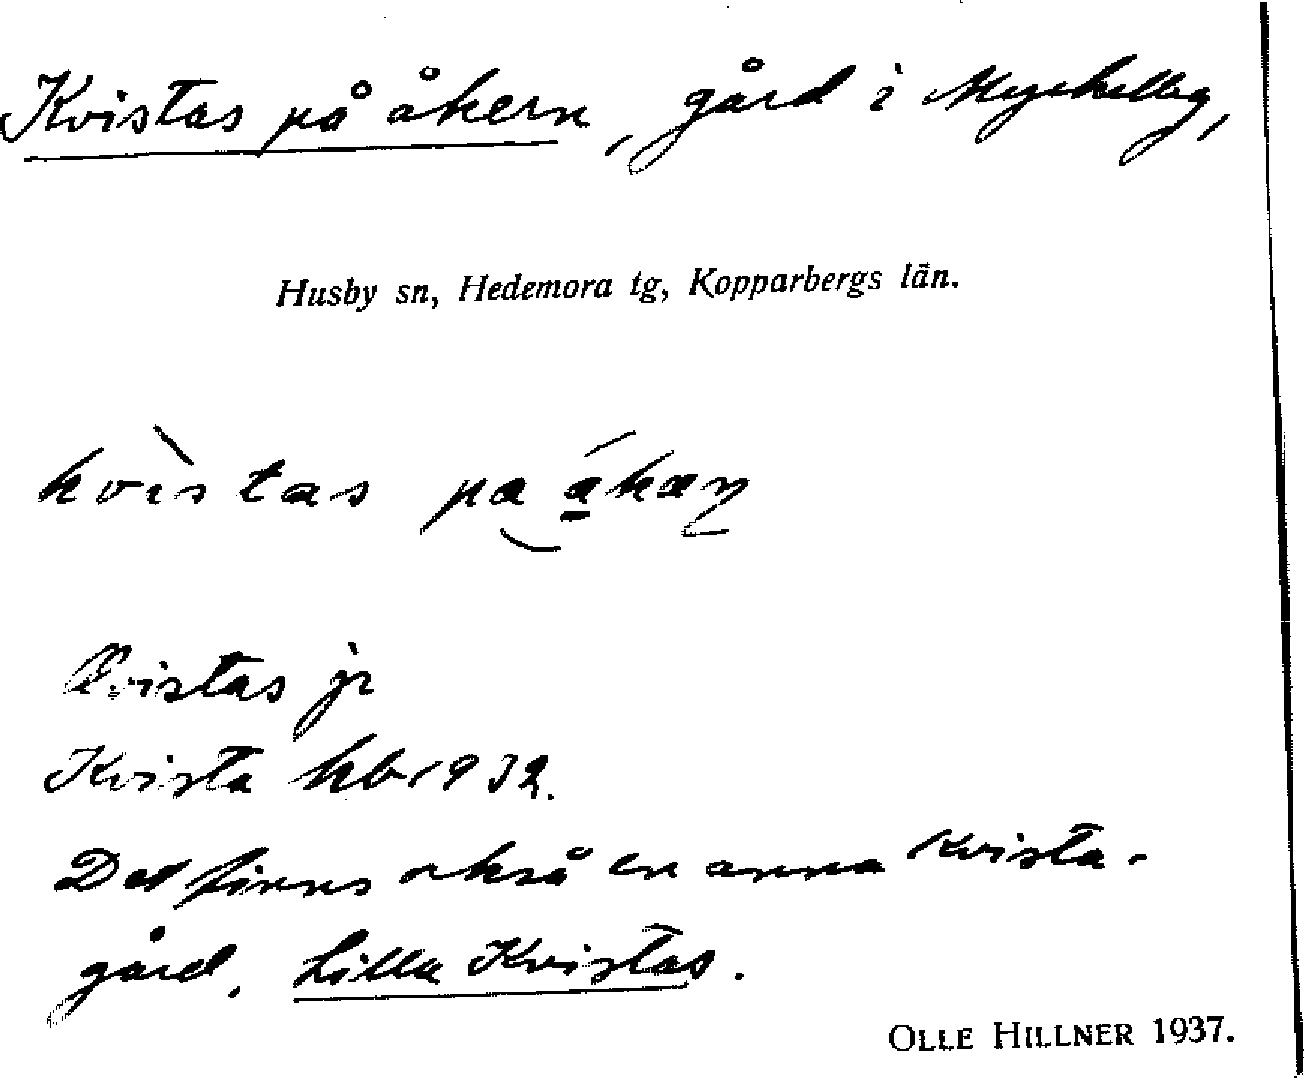 Kvistas på åkern, gård i Myckelby,
Husby sn, Hedemora tg, Kopparbergs län.
kvìstas pa ákaɳ
Kvistas jr
Kvista hb 1932.
Det finns också en anna Kvista-
gård, Lilla Kvistas.
OLLE HILLNER 1937.